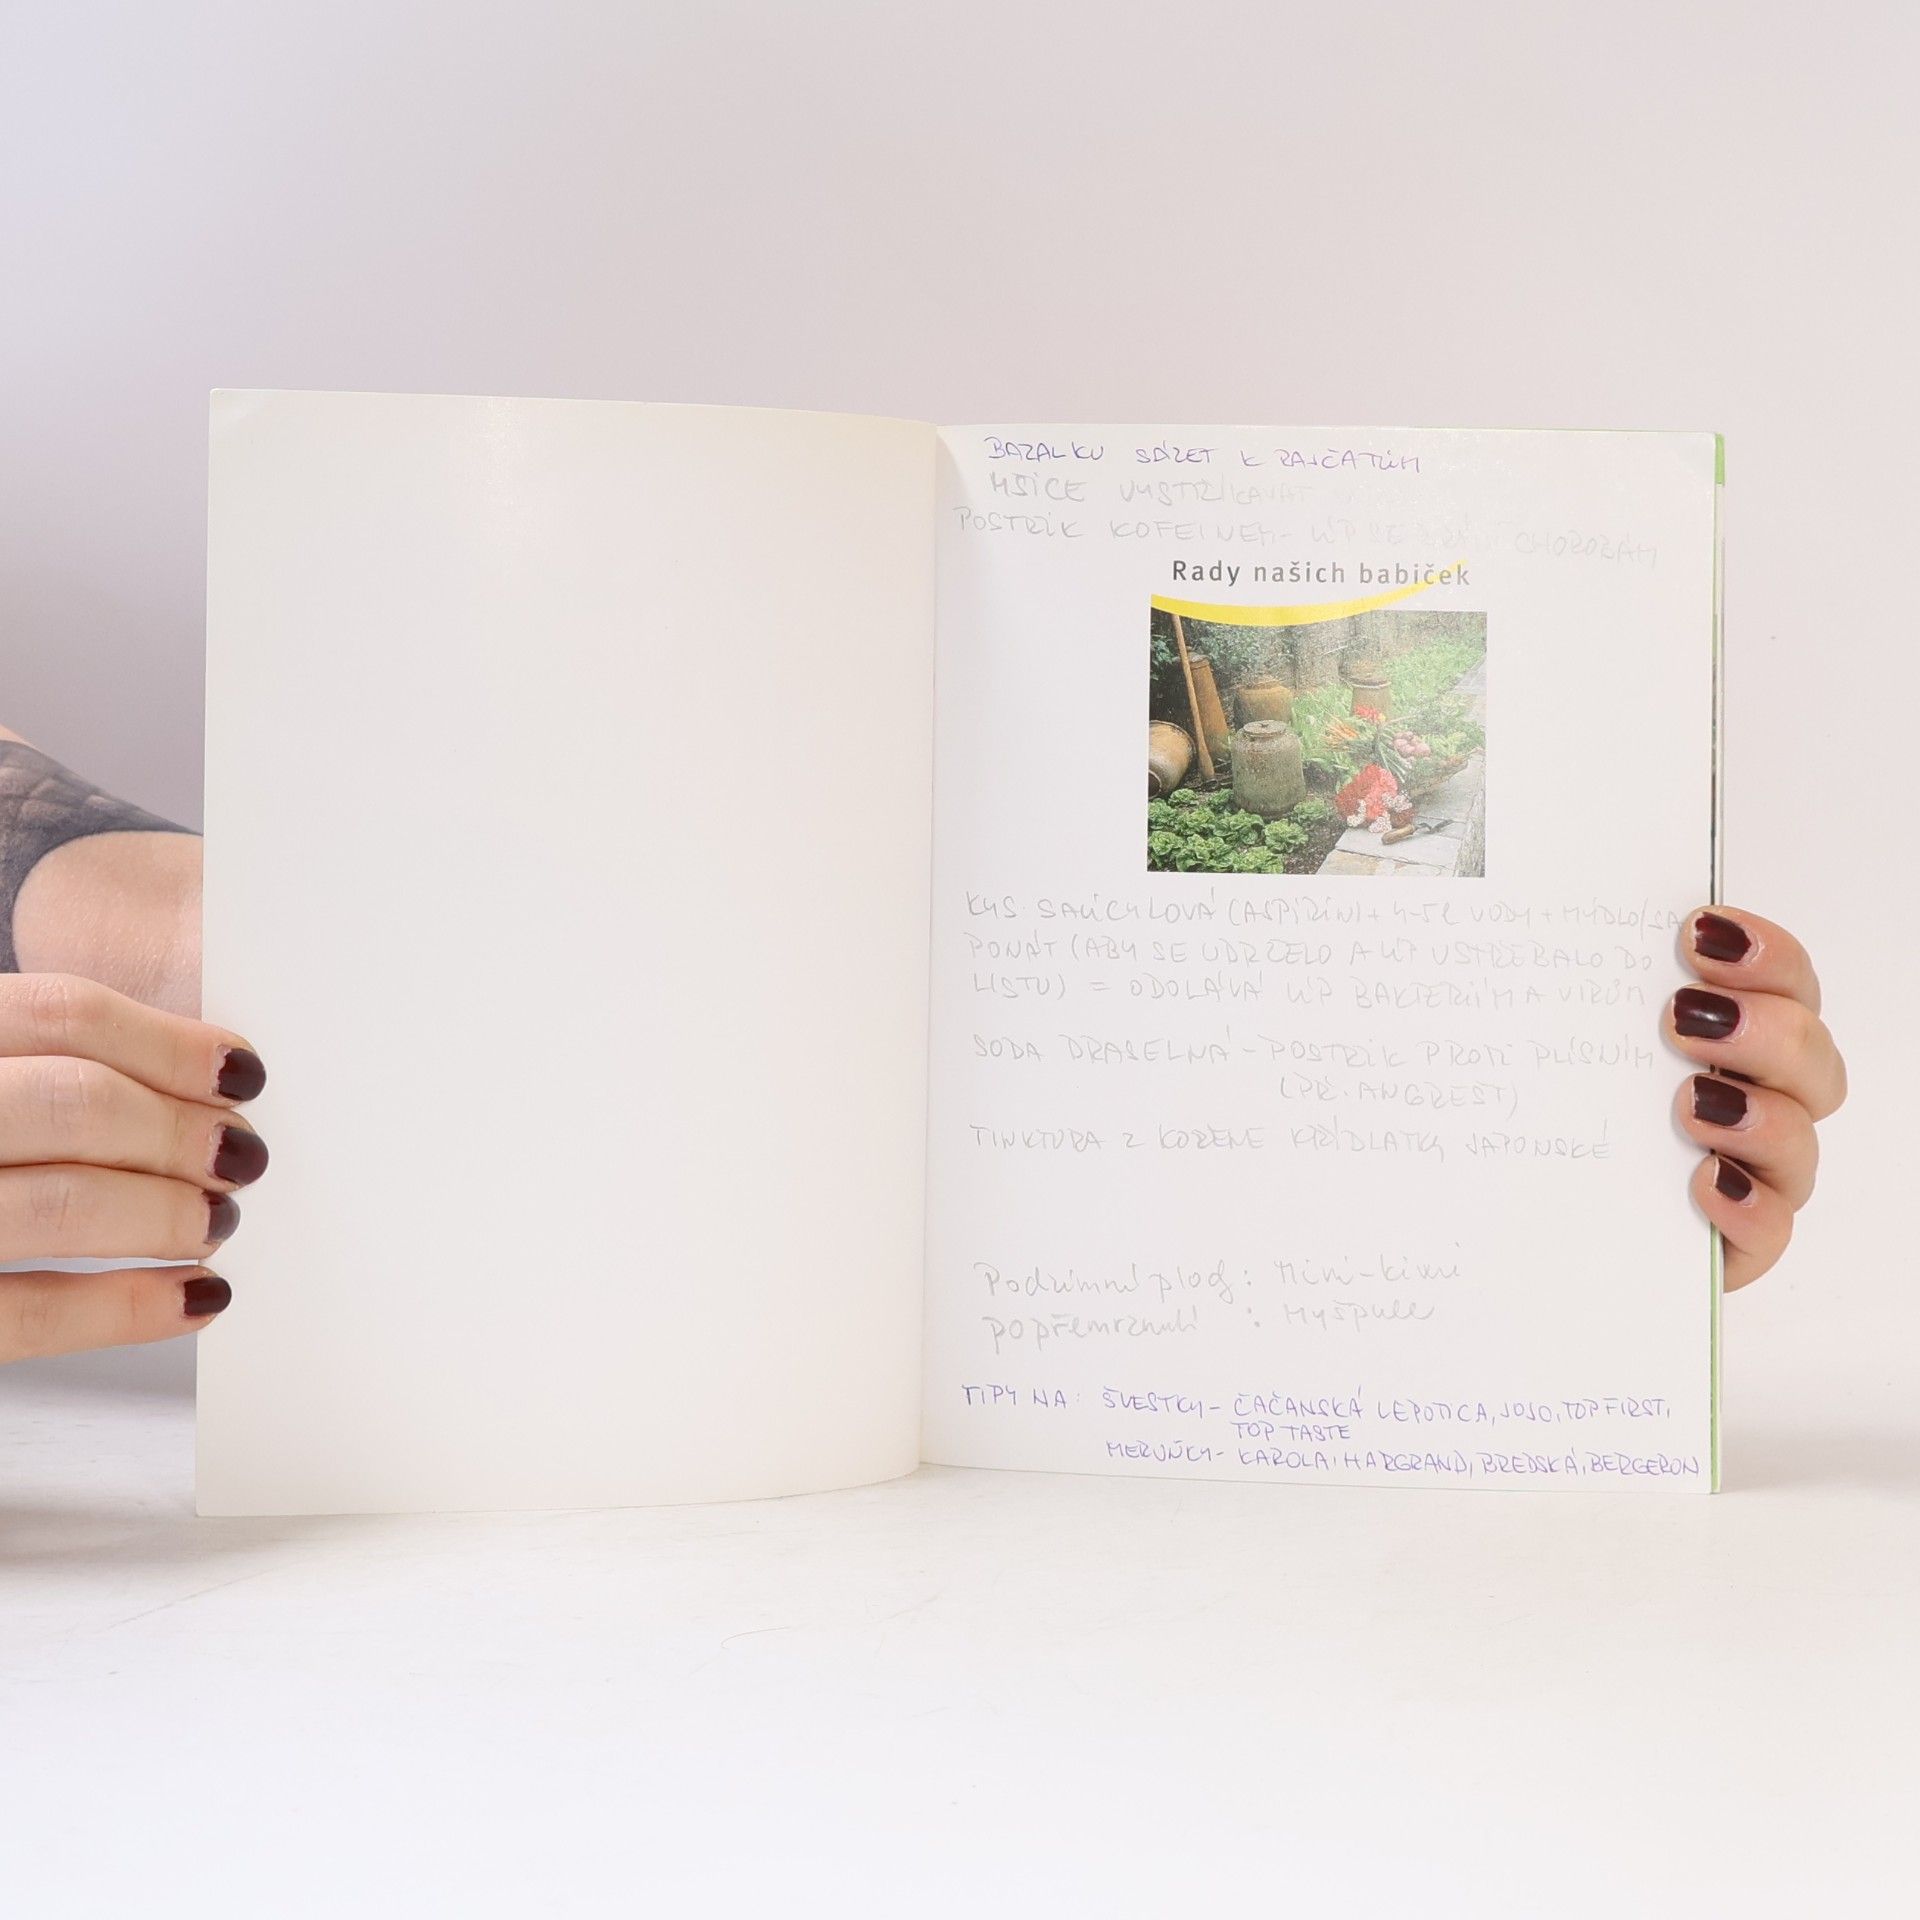 BAZALKU SÁZET K RAJČATŮM
MŠICE VYSTŘÍKAVAT
POSTŘIK KOFEINEM - LÍP SE BRÁNÍ CHOROBÁM
Rady našich babiček
KYS. SALICYLOVÁ (ASPIRIN) + 4-5 l VODY + MÝDLO/SA
PONÁT (ABY SE UDRŽELO A LÍP VSTŘEBALO DO
LISTU) = ODOLÁVÁ LÍP BAKTERIÍM A VIRŮM
SODA DRASELNÁ - POSTŘIK PROTI PLÍSNÍM
(PŘ. ANGREŠT)
TINKTURA Z KOŘENE KŘÍDLATKY JAPONSKÉ
Podzimní plody : Mini-kiwi
po přemrznutí : Myšpule
TIPY NA: ŠVESTKY - ČAČANSKÁ LEPOTICA, JOJO, TOP FIRST,
TOP TASTE
MERUŇKY - KAROLA, HARGRAND, BREDSKÁ, BERGERON